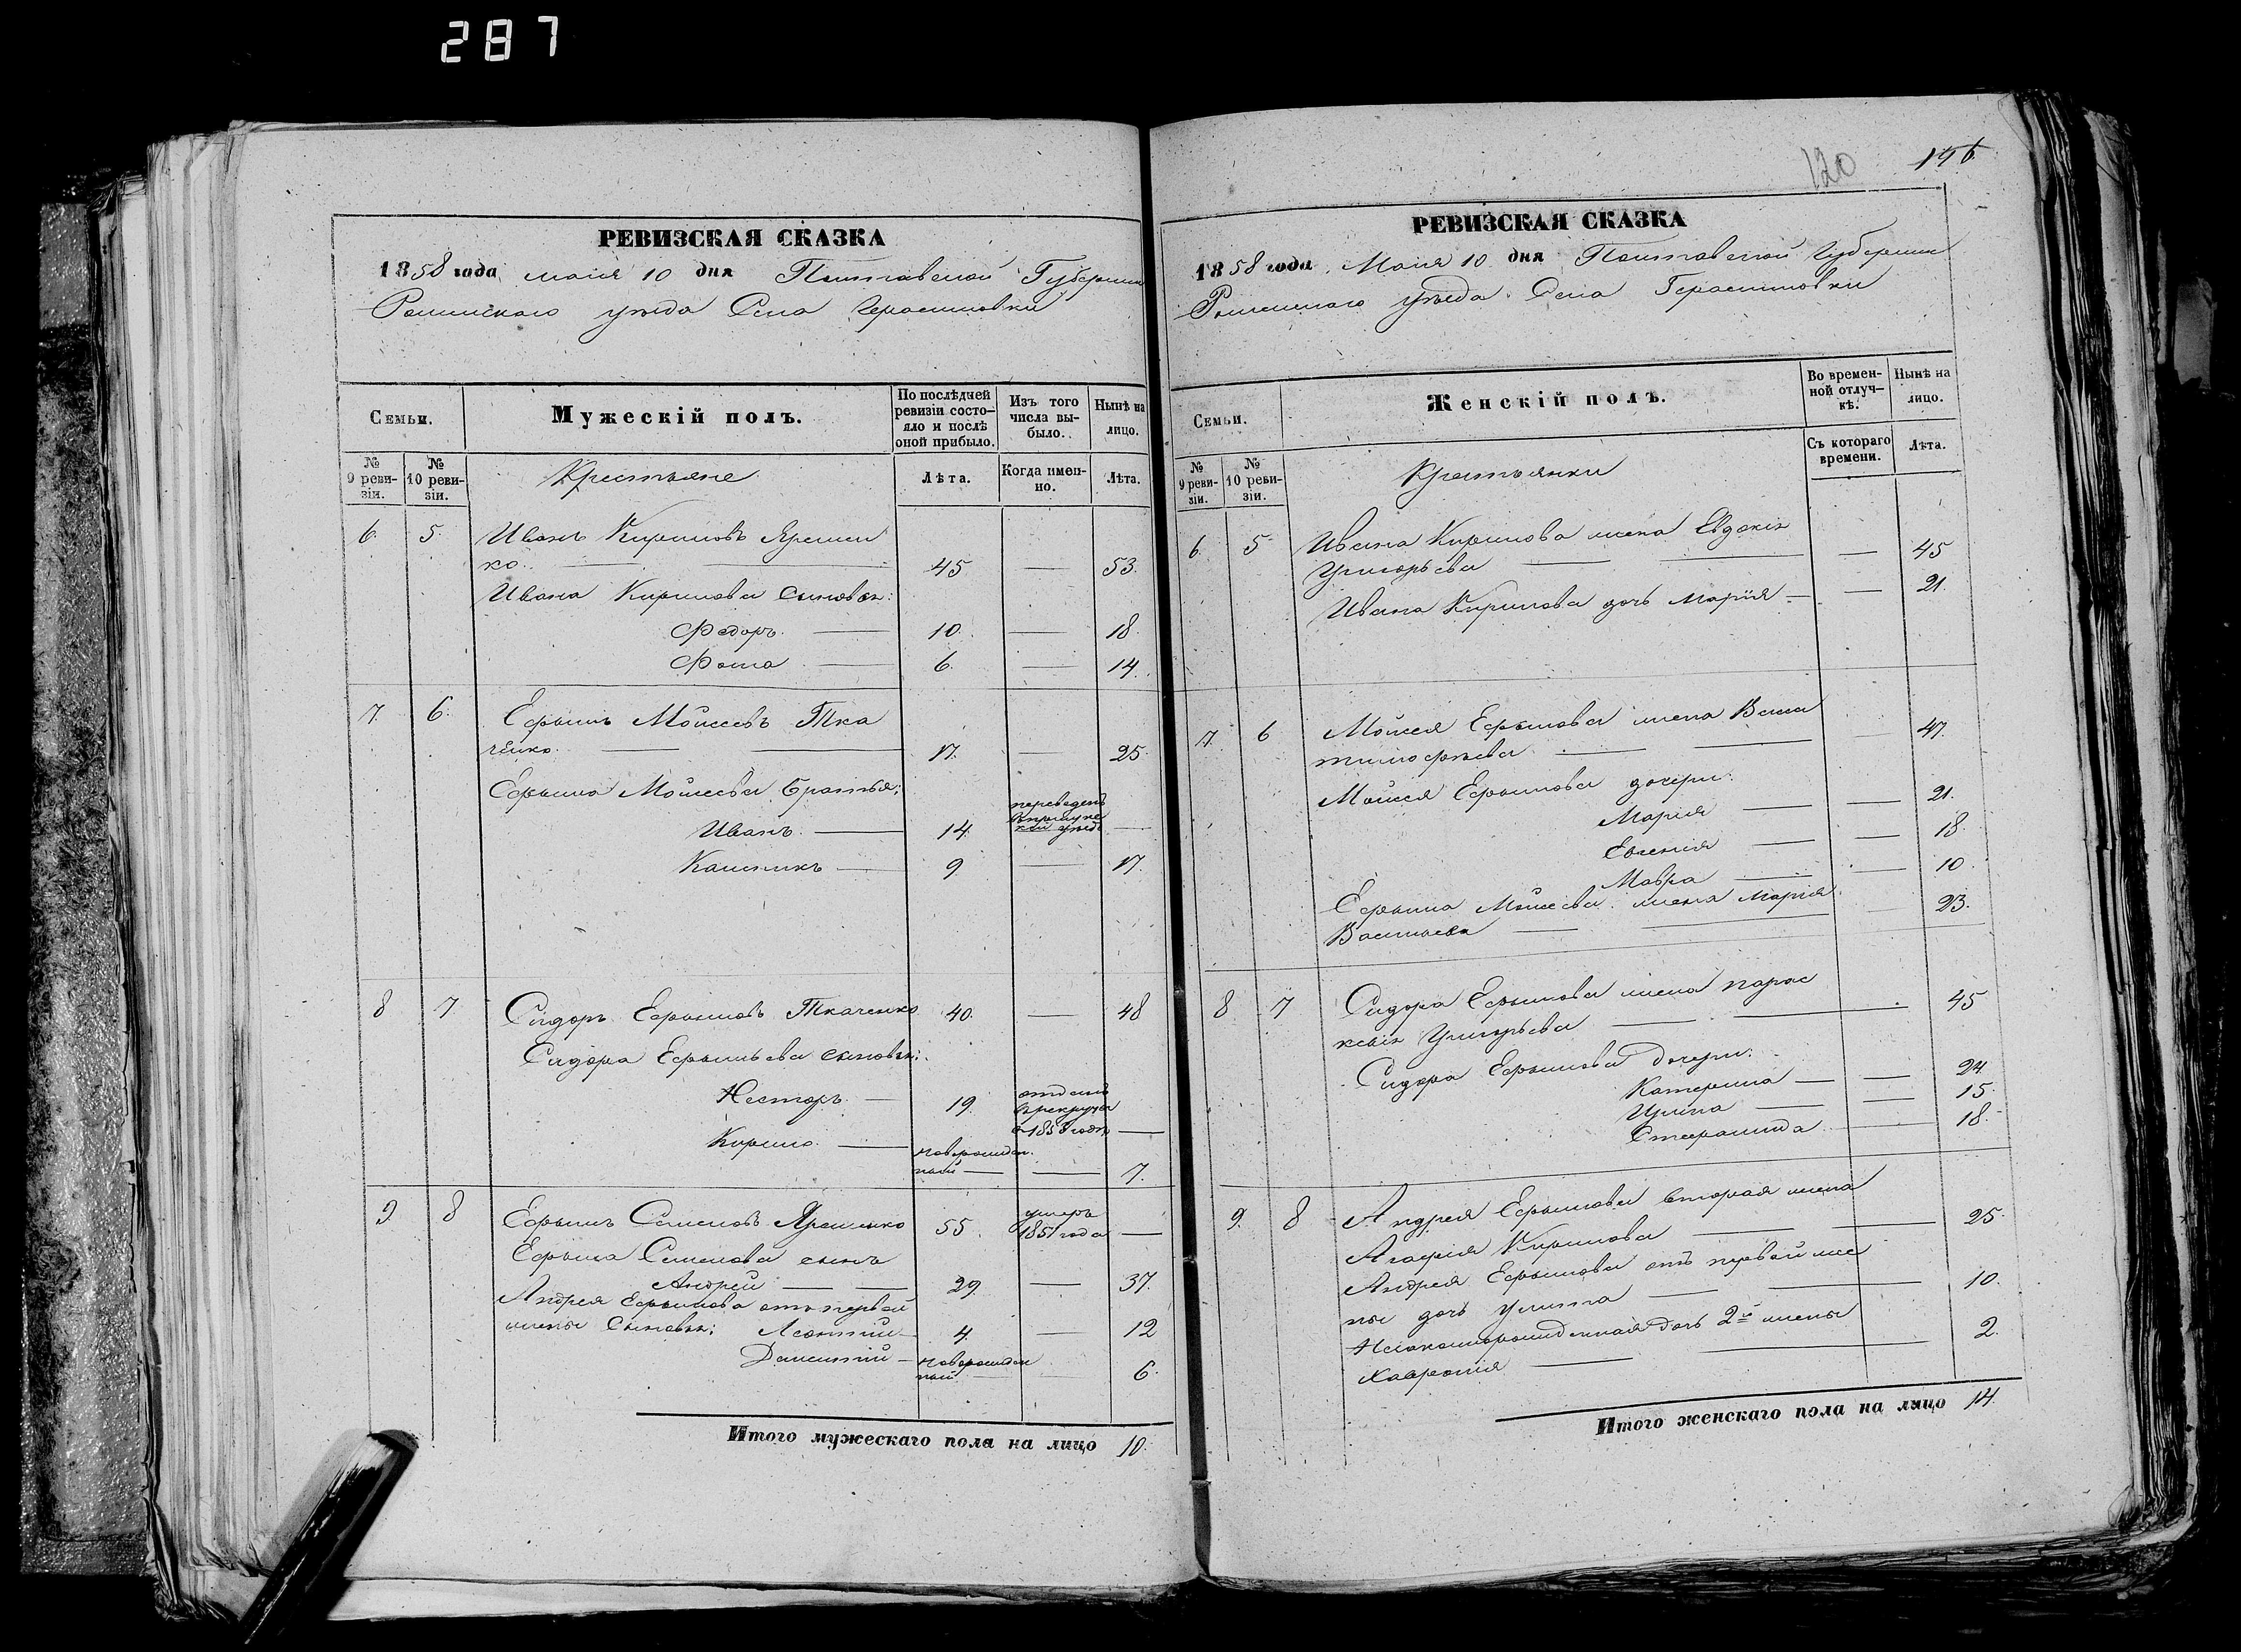 287
РЕВИЗСКАЯ СКАЗКА
1858 года маія 10 дня Полтавской Губерніи
Роменскаго уѣзда Села Герасимовки
Семьи.
Мужескій полъ.
По послѣдней ревизіи состо-
яло и послѣ оной прибыло.
Изъ того числа вы-
было.
Нынѣ на лицо.
№ 9 реви-
зіи.
№ 10 реви-
зіи.
Крестьяне
Лѣта.
Когда имен-
но.
Лѣта.
6. 5. Иванъ Кириловъ Яременко
ко. — 45 — 53.
Ивана Кирилова сыновья:
Федоръ — 10. — 18.
Фома — 6. — 14.
7. 6. Ефимъ Моисеевъ Тка
ченко. — 17. — 25.
Ефима Моисеева братья:
Иванъ — 14. переведенъ —
Калиникъ — 9 — 17.
8 7 Сидоръ Ефимовъ Ткаченко 40. — 48
Сидора Ефимова сыновья:
Несторъ — 19. отданъ
въ рекруты
въ 1853 году —
Кирило — новорожден
ный — — 7.
9. 8 Ефимъ Семеновъ Яременко 55. умеръ
1851 года —
Ефима Семенова сынъ
Андрей — 29. — 37.
Андрея Ефимова отъ первой
жены сыновья: Леонтій — 4. — 12
Дометій — новорожден
ный — — 6.
Итого мужескаго пола на лицо 10.
120 146
РЕВИЗСКАЯ СКАЗКА
1858 года Маія 10 дня Полтавской Губерніи
Роменскаго уѣзда Села Герасимовки
Семьи.
Женскій полъ.
Во времен-
ной отлуч-
кѣ.
Нынѣ на лицо.
№ 9 реви-
зіи.
№ 10 реви-
зіи.
Крестьянки
Съ котораго времени.
Лѣта.
6. 5 Ивана Кирилова жена Евдокія
Григорьева — — 45
Ивана Кирилова дочь Марія — — 21.
7. 6 Моисея Ефимова жена Васса
Тимофѣева — — 47.
Моисея Ефимова дочери:
Марія — — 21.
Евгенія — — 18.
Мавра — — 10.
Ефима Моисеева жена Марія
Васильева — — 23.
8 7 Сидора Ефимова жена Парас
ковія Григорьева — — 45
Сидора Ефимова дочери:
Катерина — — 24
Улита — — 15
Степанида — 18.
9. 8 Андрея Ефимова вторая жена
Агафія Кирилова — — 25
Андрея Ефимова отъ первой же
ны дочь Улита — — 10.
дочь 2й жены
Хавронія — — 2.
Итого женскаго пола на лицо 14.